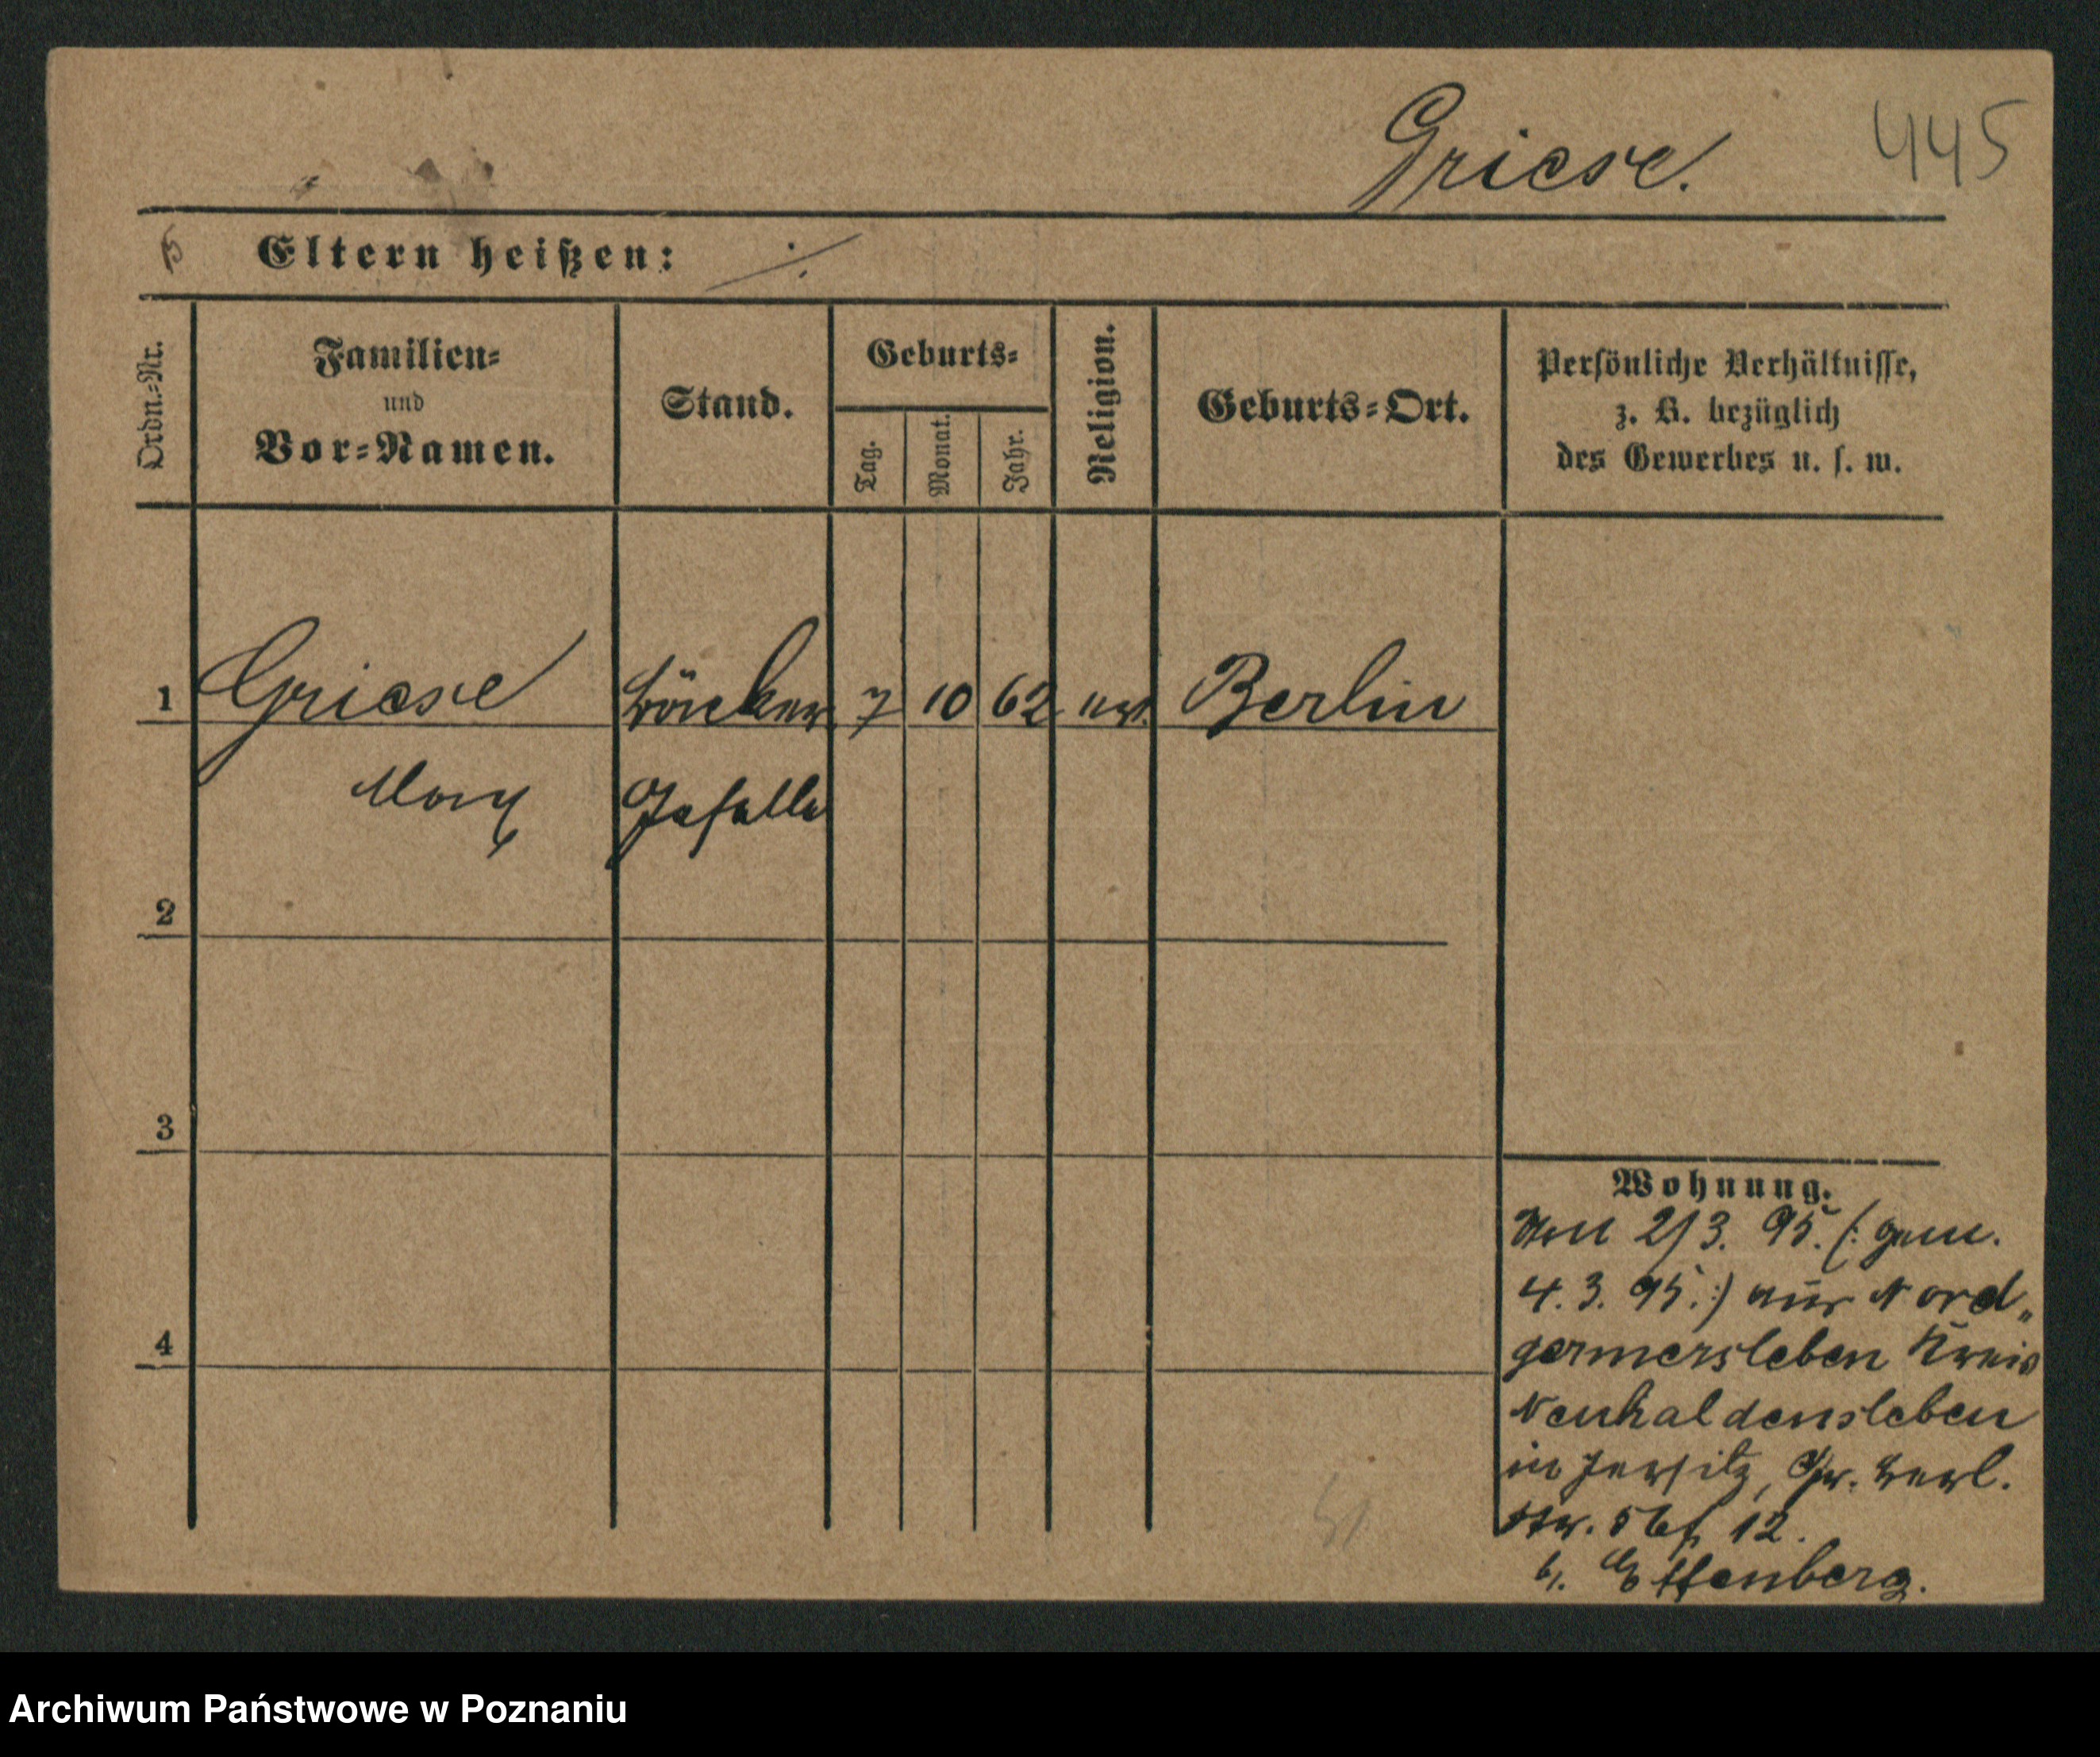 Griese.
445
Eltern heißen: ⁒
Ordn.=Nr.
Familien=
und
Vor=Namen.
Stand.
Geburts=
Tag.
Monat.
Jahr.
Religion.
Geburts=Ort.
Persönliche Verhältnisse,
z. B. bezüglich
des Gewerbes u. s. w.
1 Griese Böttcher 7 10 62 ev. Berlin
Max Geselle
2
3
4
Wohnung.
Von 2/3. 95. (: gem.
4. 3. 95. :) aus Nord„
germersleben Kreis
Neuhaldensleben
in Jersitz, Gr. Berl.
Str. 12.
b. Effenberg.
51
Archiwum Państwowe w Poznaniu